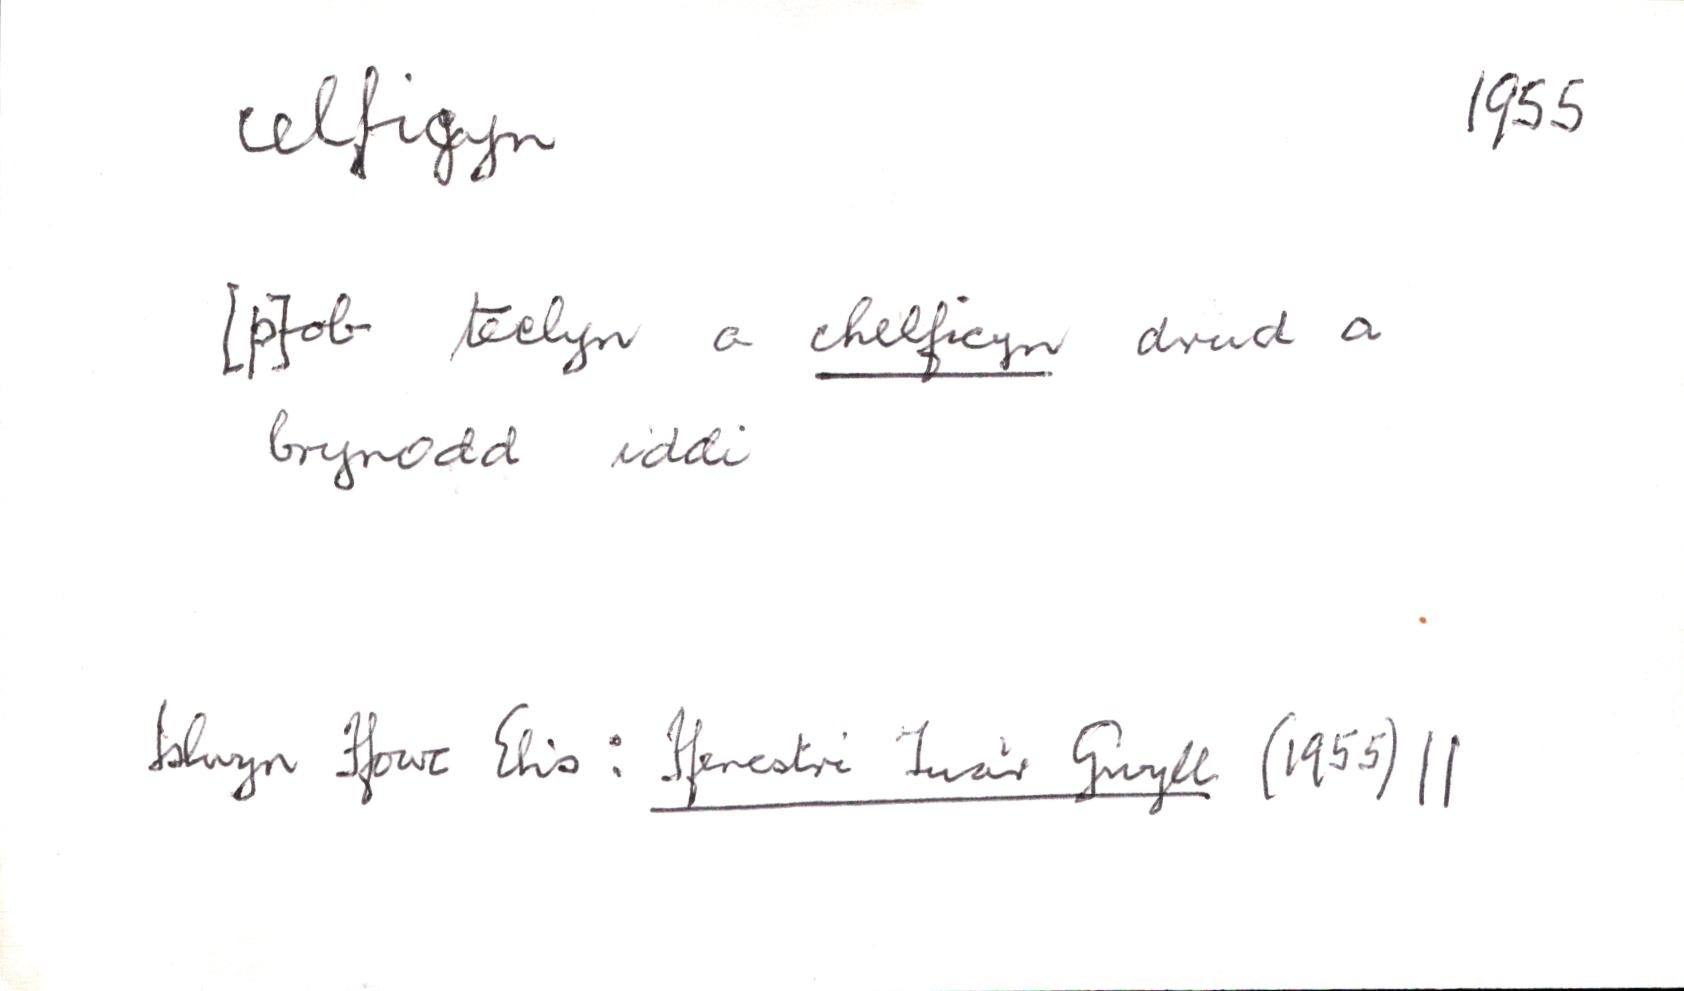 celfigyn 1955
[p]ob teclyn a chelficyn drud a
brynodd iddi
Islwyn Ffowc Elis: Ffenestri Tua'r Gwyll (1955) 11